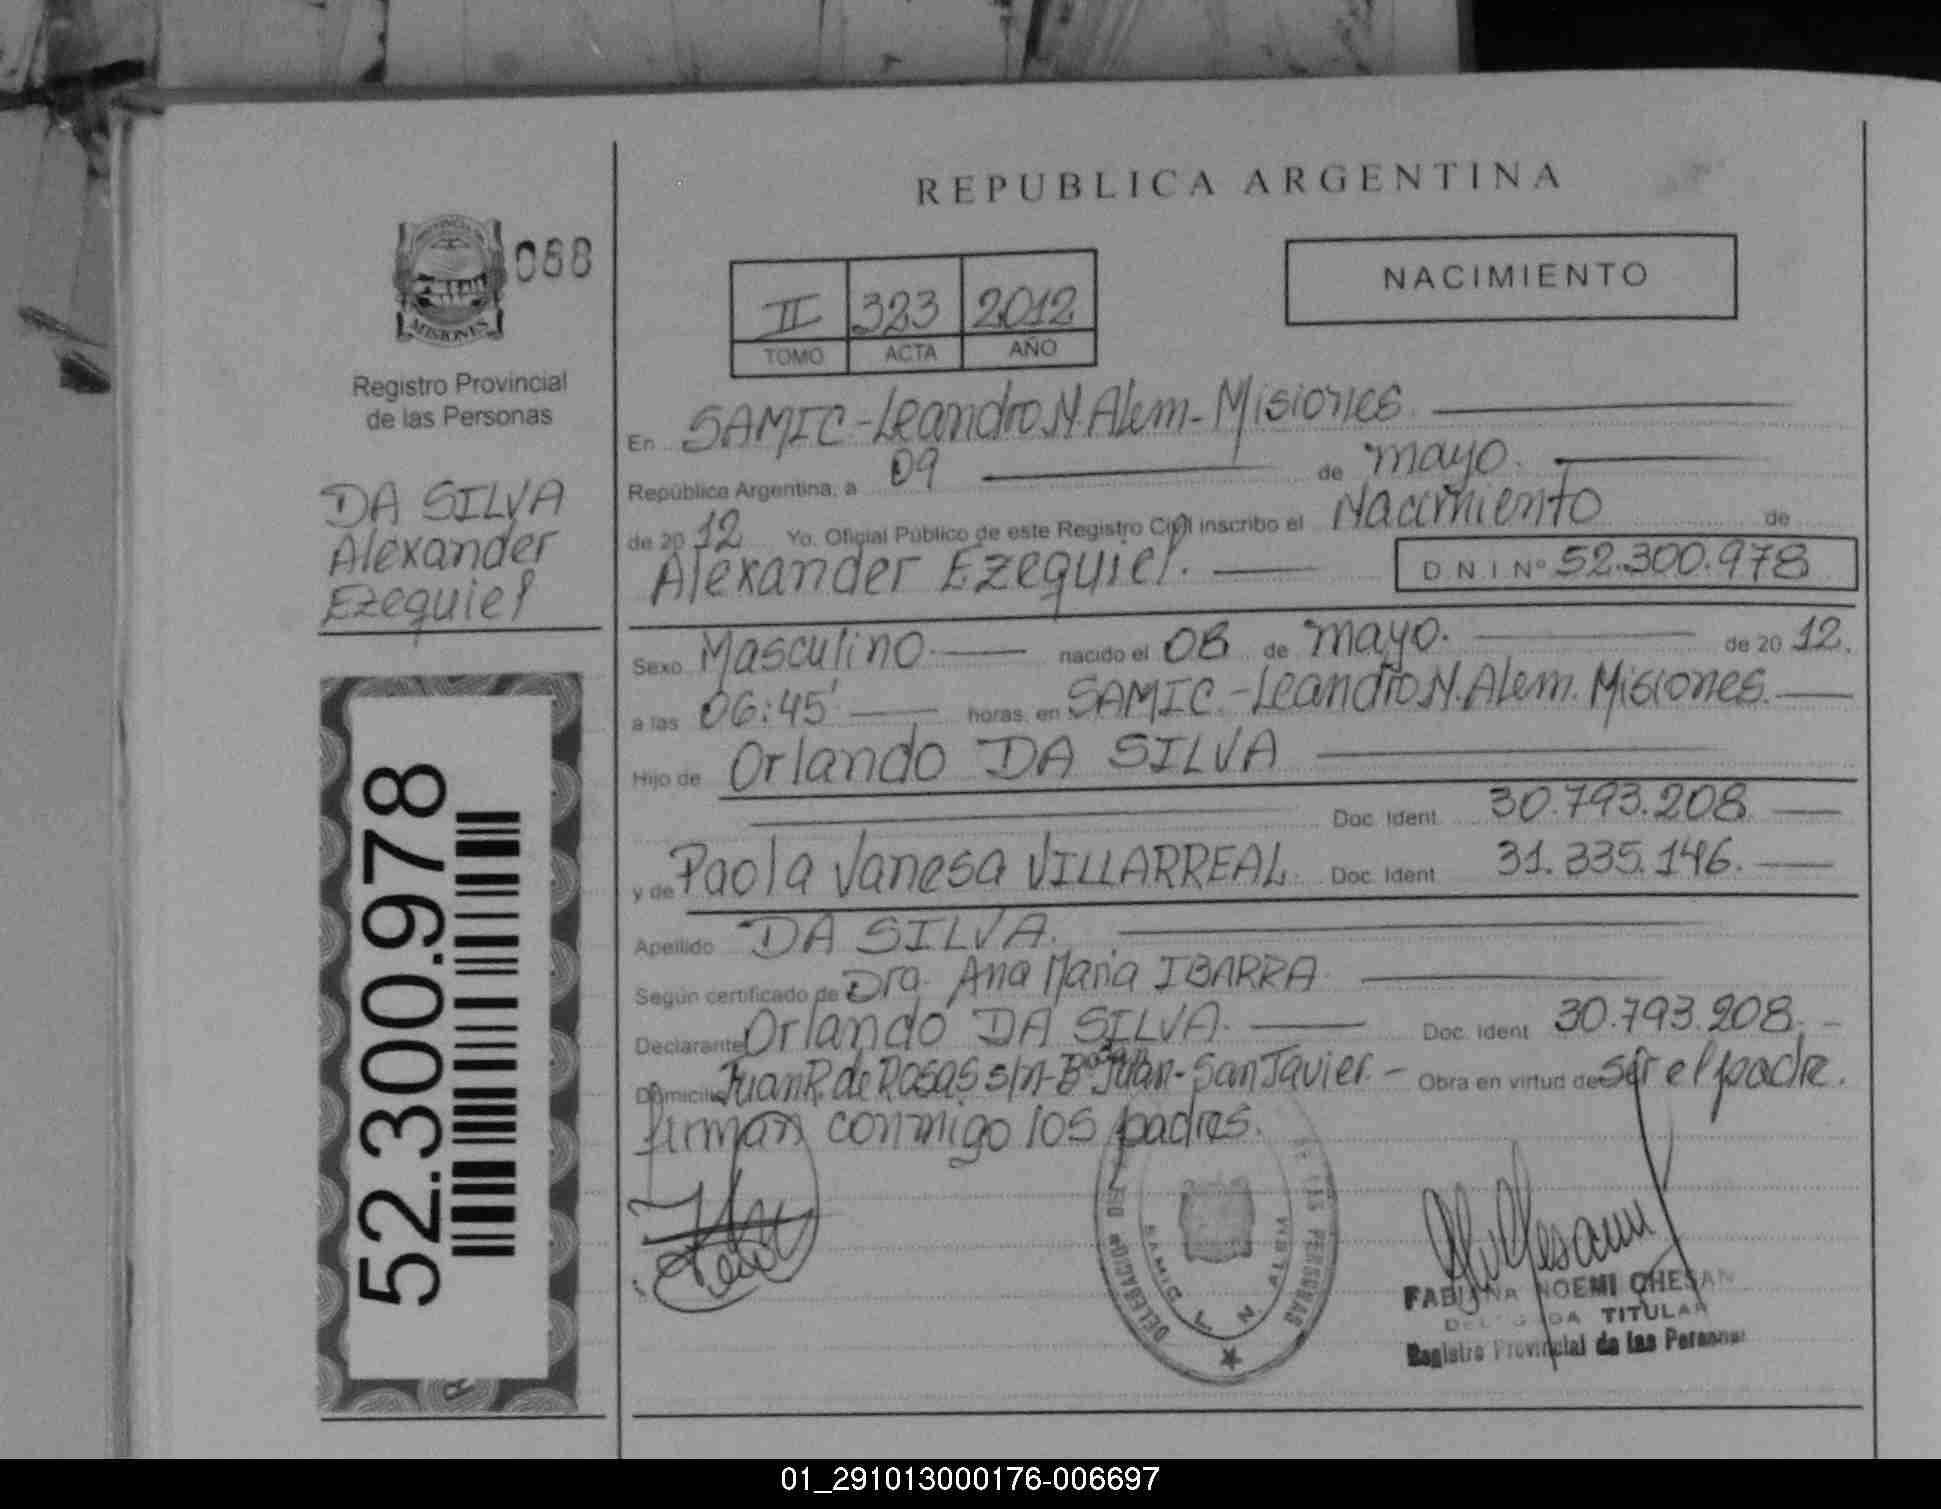 REPUBLICA ARGENTINA
MISIONES
088
Registro Provincial
de las Personas
DA SILVA
Alexander
Ezequiel
52.300.978
NACIMIENTO
II 323 2012
TOMO ACTA AÑO
En SAMIC-Leandro N. Alem-Misiones.
República Argentina, a 09 de mayo.
de 2012 Yo, Oficial Público de este Registro Civil inscribo el Nacimiento de
Alexander Ezequiel. D.N.I Nº 52.300.978
Sexo Masculino nacido el 08 de mayo. de 2012.
a las 06:45' horas, en SAMIC.-Leandro N. Alem. Misiones.
Hijo de Orlando DA SILVA
Doc. Ident. 30.793.208
y de Paola Vanesa VILLARREAL. Doc. Ident. 31.335.146.
Apellido DA SILVA.
Según certificado de Dra. Ana Maria IBARRA.
Declarante Orlando DA SILVA. Doc. Ident. 30.793.208.
Domicilio Juan R. de Rosas s/n-Bº Juan-San Javier.- Obra en virtud de ser el padre.
firman conmigo los padres.
DELEGACION DE LAS PERSONAS
SAMIC L. N. ALEM
FABIANA NOEMI CHESANI
DELEGADA TITULAR
Registro Provincial de las Personas
01_291013000176-006697